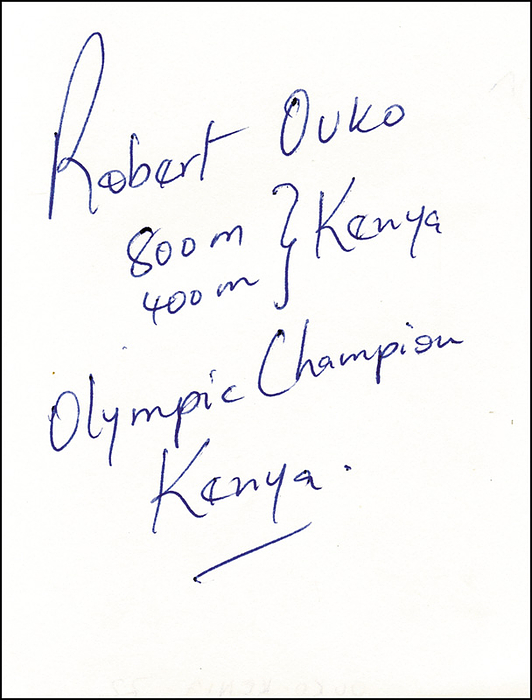 Robert Ouko
800m } Kenya
400m
Olympic Champion
Kenya.